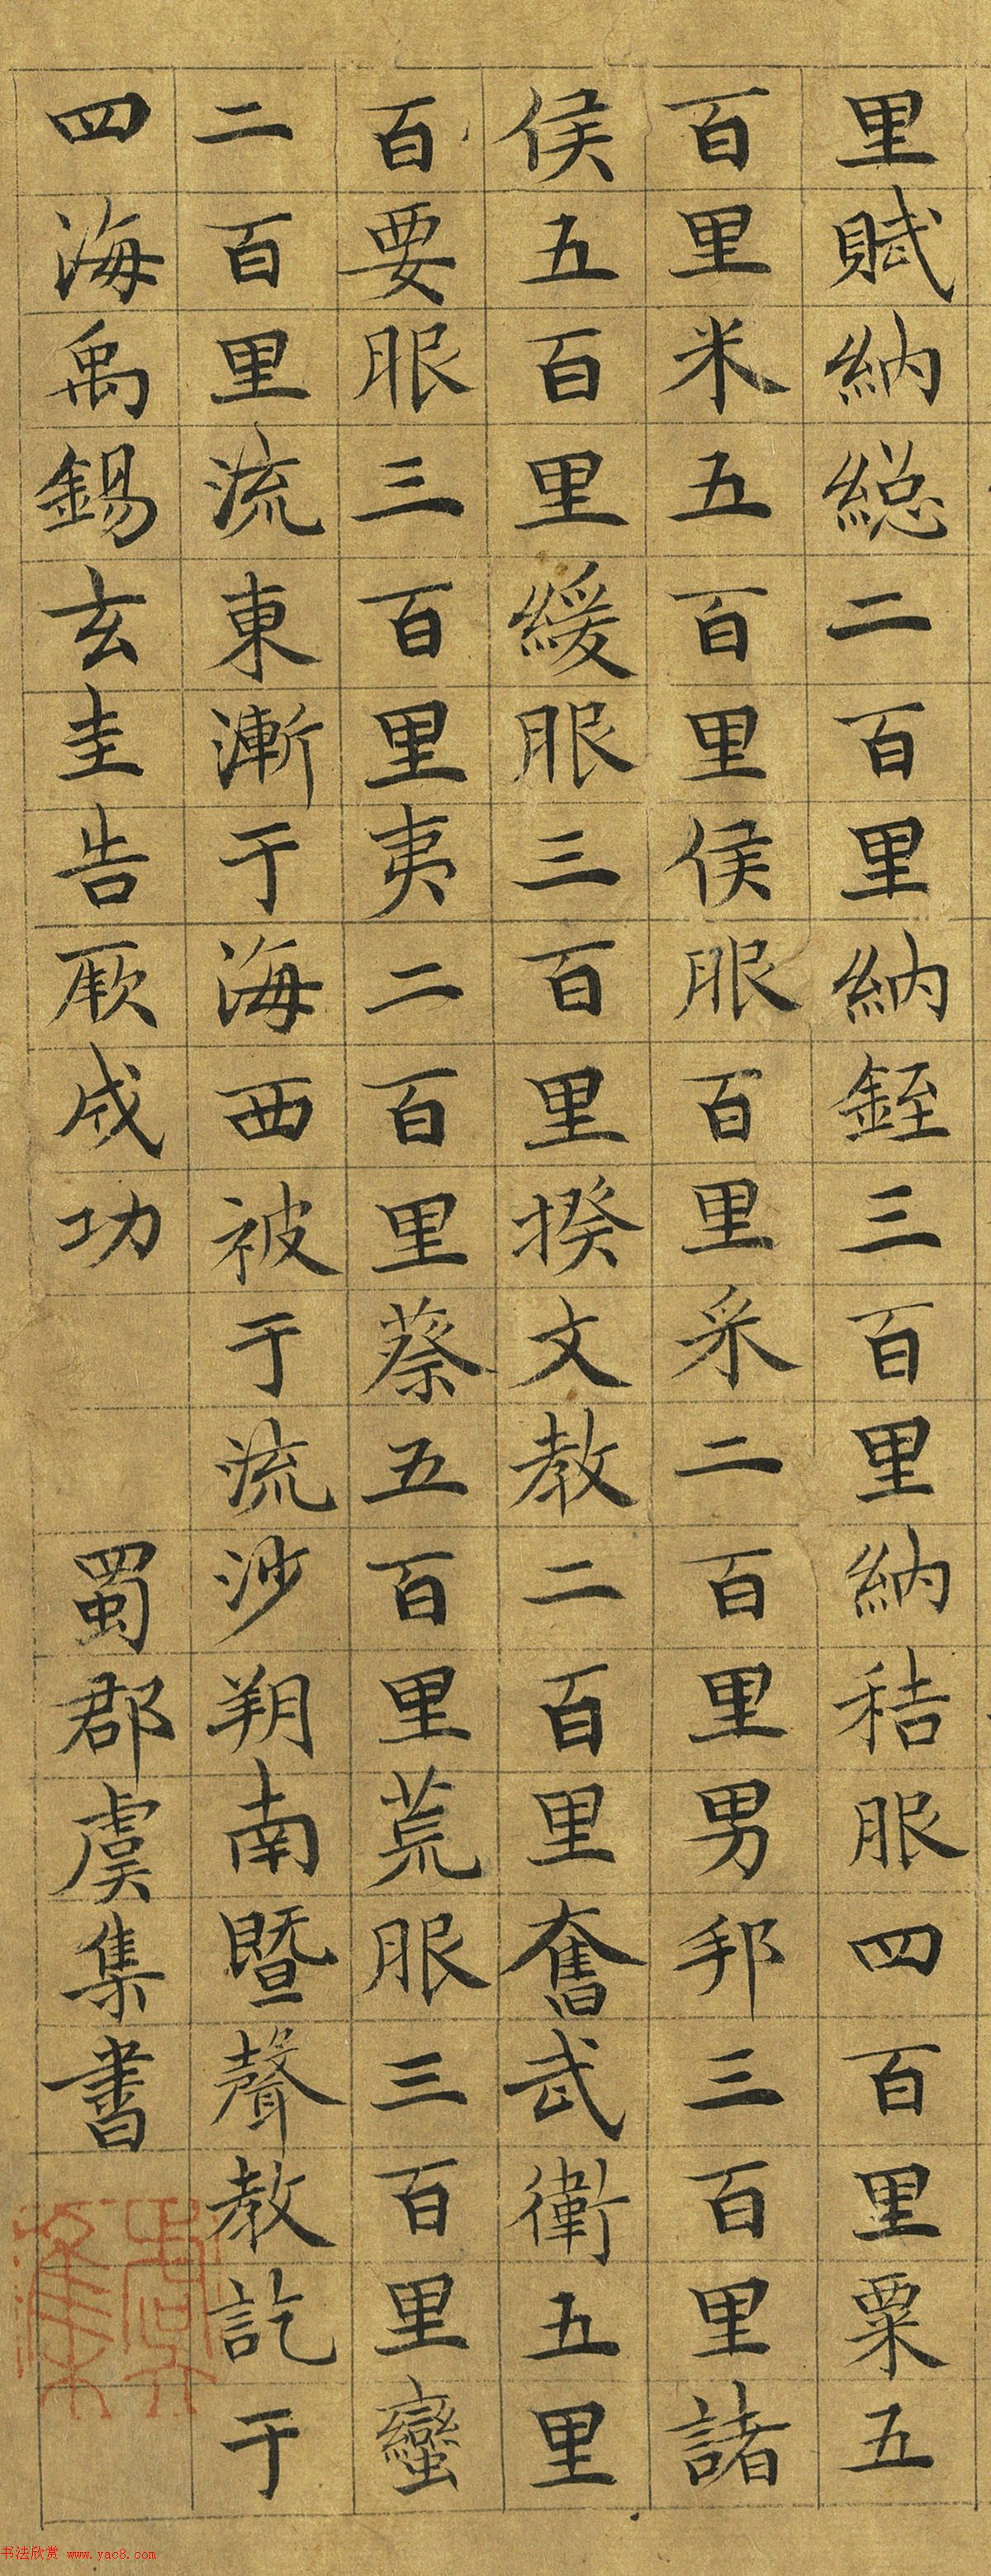 里賦納緫二百里納銍三百里納秸服四百里粟五
百里米五百里侯服百里采二百里男邦三百里諸
侯五百里綏服三百里揆文教二百里奮武衛五里
百要服三百里夷二百里蔡五百里荒服三百里蠻
二百里流東漸于海西被于流沙朔南暨聲教訖于
四海禹錫玄圭告厥成功 蜀郡虞集書
虞集
书法欣赏 www.yac8.com